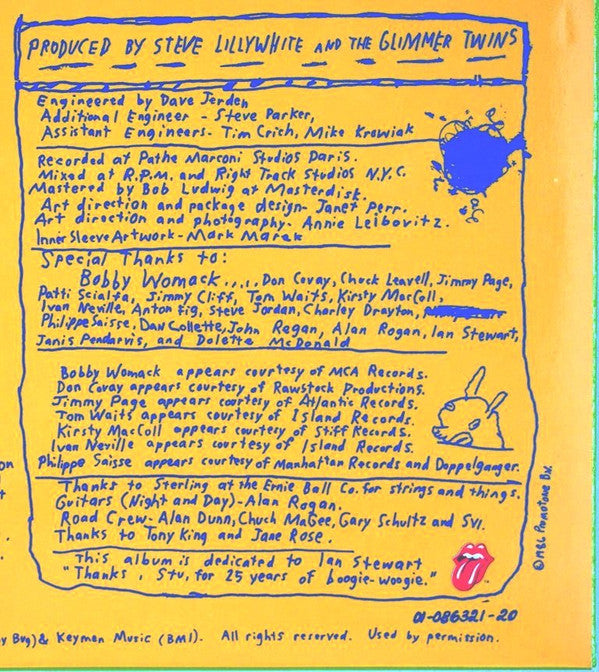 PRODUCED BY STEVE LILLYWHITE AND THE GLIMMER TWINS
Engineered by Dave Jerden
Additional Engineer - Steve Parker,
Assistant Engineers- Tim Crich, Mike Krowiak
Recorded at Pathe Marconi Studios Paris.
Mixed at R.P.M. and Right Track Studios N.Y.C.
Mastered by Bob Ludwig at Masterdisk.
Art direction and package design- Janet Perr.
Art direction and photography- Annie Leibovitz.
Inner Sleeve Artwork- Mark Marek
Special Thanks to:
Bobby Womack..... Don Covay, Chuck Leavell, Jimmy Page,
Patti Scialfa, Jimmy Cliff, Tom Waits, Kirsty MacColl,
Ivan Neville, Anton Fig, Steve Jordan, Charley Drayton,
Philippe Saisse, Dan Collette, John Regan, Alan Rogan, Ian Stewart,
Janis Pendarvis, and Dolette McDonald
Bobby Womack appears courtesy of MCA Records.
Don Covay appears courtesy of Rawstock Productions.
Jimmy Page appears courtesy of Atlantic Records.
Tom Waits appears courtesy of Island Records.
Kirsty MacColl appears courtesy of Stiff Records.
Ivan Neville appears courtesy of Island Records.
Philippe Saisse appears courtesy of Manhattan Records and Doppelganger.
Thanks to Sterling at the Ernie Ball Co. for strings and things.
Guitars (Night and Day)- Alan Rogan.
Road Crew- Alan Dunn, Chuck MaGee, Gary Schultz and Svi.
Thanks to Tony King and Jane Rose.
This album is dedicated to Ian Stewart
"Thanks, Stu, for 25 years of boogie-woogie."
© 1986 Promotone B.V.
01-086321-20
y Bug) & Keyman Music (BMI). All rights reserved. Used by permission.